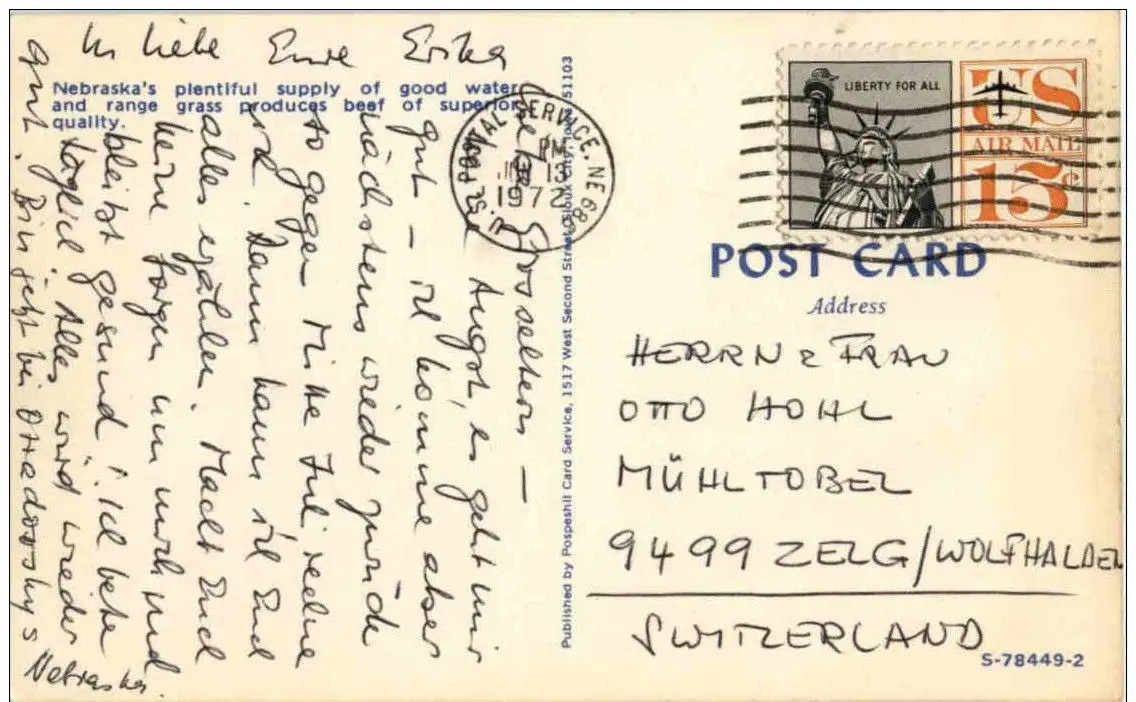 Nebraska's plentiful supply of good water
and range grass produces beef of superior
quality.
Grosseltern –
Angst, es geht mir
gut – ich komme aber
nächstens wieder zurück
so gegen Mitte Juli rechne
ich. Dann kann ich Euch
alles erzählen. Macht Euch
keine Sorgen um mich und
bleibt gesund! Ich bete
täglich. Alles wird wieder
gut. Bin jetzt bei
Nebraska.
In Liebe Eure Erika
Published by Pospeshil Card Service, 1517 West Second Street, Sioux City, Iowa 51103
U.S. POSTAL SERVICE, NE 68
PM
13
1972
LIBERTY FOR ALL
US
AIR MAIL
15c
POST CARD
Address
HERRN & FRAU
OTTO HOHL
MÜHLTOBEL
9499 ZELG/WOLFHALDEN
SWITZERLAND
S-78449-2